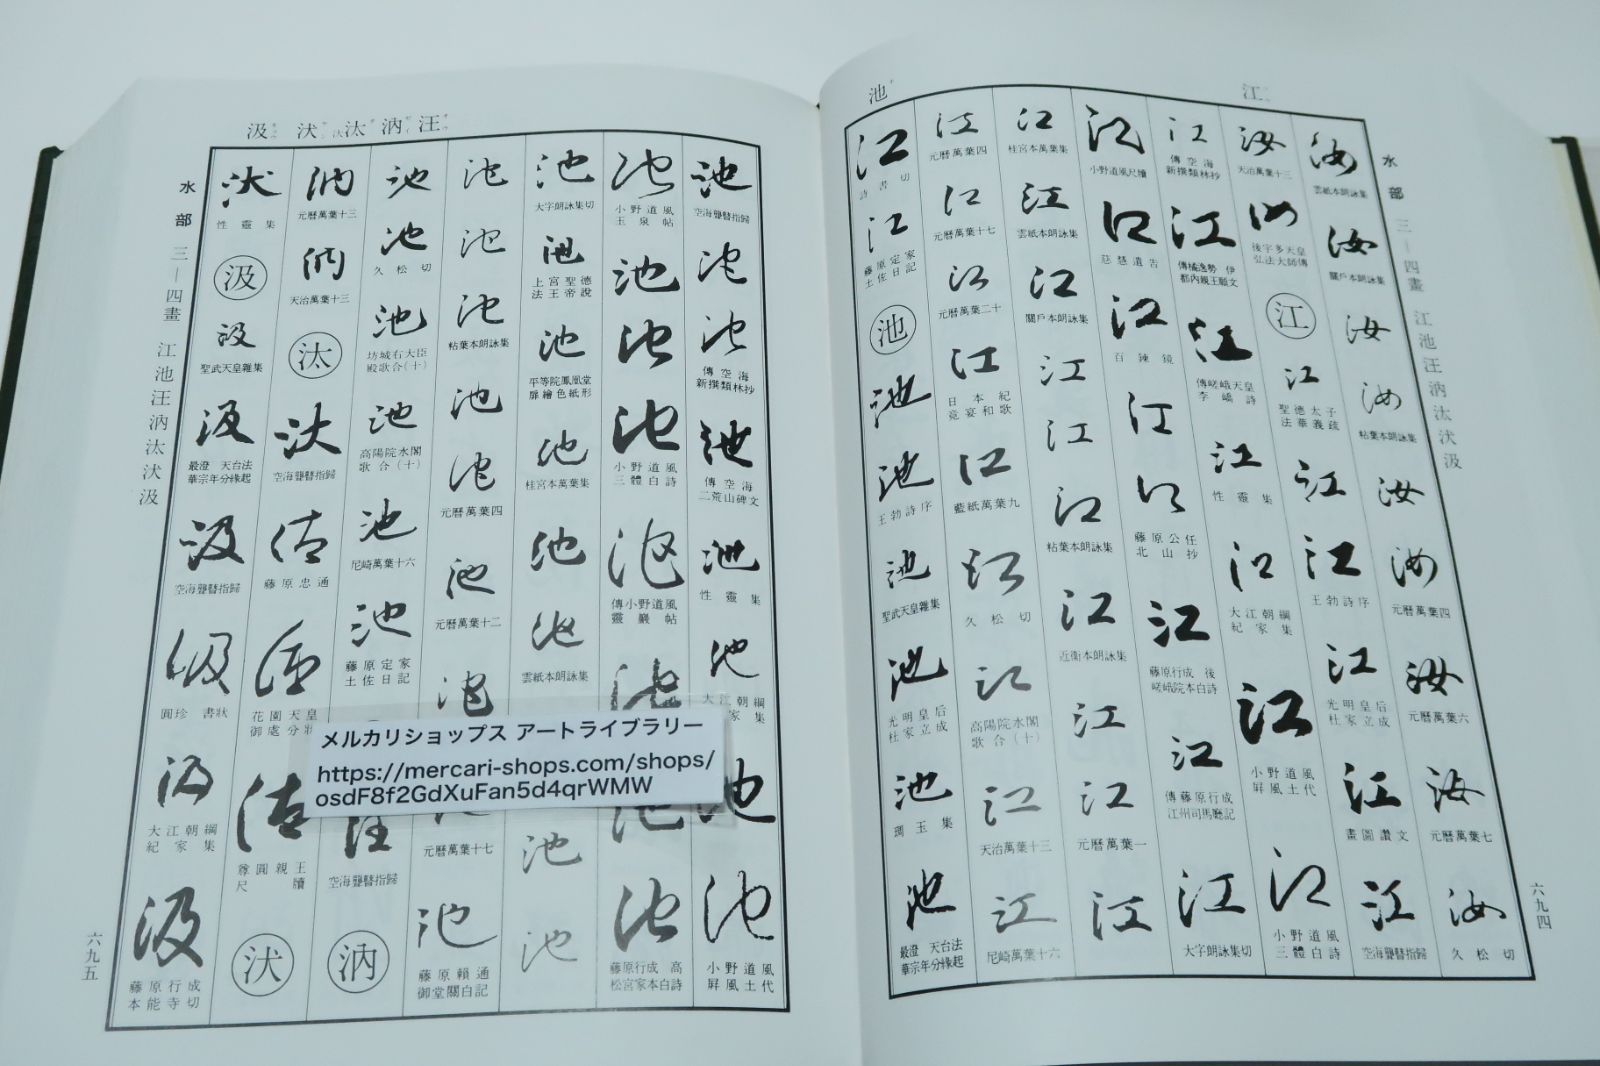 江
池
水部 三—四畫 江池汪汭汰汱汲
六九四
汝
雲紙本朗詠集
汝
關戶本朗詠集
汝
汝
粘葉本朗詠集
汝
汝
元曆萬葉四
汝
元曆萬葉六
汝
元曆萬葉七
汝
久松切
汝
天治萬葉十三
汝
後宇多天皇
弘法大師傳
江
江
聖德太子
法華義疏
江
江
王勃詩序
江
光明皇后
杜家立成
江
畫圖讚文
江
空海聾瞽指歸
江
傳空海
新撰類林抄
江
傳橘逸勢 伊
都內親王願文
江
傳嵯峨天皇
李嶠詩
江
性靈集
江
大江朝綱
紀家集
江
小野道風
屏風土代
江
小野道風
三體白詩
江
小野道風尺牘
江
慈慧遺告
江
百鍊鏡
江
江
藤原公任
北山抄
江
藤原行成 後
嵯峨院本白詩
江
傳藤原行成
江州司馬廳記
江
大字朗詠集切
江
桂宮本萬葉集
江
雲紙本朗詠集
江
關戶本朗詠集
江
江
江
粘葉本朗詠集
江
近衞本朗詠集
江
江
元曆萬葉一
江
江
元曆萬葉四
江
元曆萬葉十七
江
元曆萬葉二十
江
日本紀
竟宴和歌
江
藍紙萬葉九
江
久松切
江
高陽院水閣
歌合(十)
江
天治萬葉十三
江
尼崎萬葉十六
江
詩書切
江
藤原定家
土佐日記
池
池
池
王勃詩序
池
聖武天皇雜集
池
光明皇后
杜家立成
池
琱玉集
池
最澄 天台法
華宗年分緣起
汲 汱 汰 汭 汪
水部 三—四畫 江池汪汭汰汱汲
六九五
池
空海聾瞽指歸
池
池
傳空海
新撰類林抄
池
傳空海
二荒山碑文
池
性靈集
池
大江朝綱
紀家集
池
池
小野道風
屏風土代
池
小野道風
玉泉帖
池
池
池
小野道風
三體白詩
池
傳小野道風
靈巖帖
池
池
池
藤原行成 高
松宮家本白詩
池
大字朗詠集切
池
上宮聖德
法王帝說
池
平等院鳳凰堂
扉繪色紙形
池
桂宮本萬葉集
池
池
雲紙本朗詠集
池
池
池
池
池
粘葉本朗詠集
池
池
元曆萬葉四
池
元曆萬葉十二
池
元曆萬葉十七
池
藤原賴通
御堂關白記
池
池
久松切
池
坊城右大臣
殿歌合(十)
池
高陽院水閣
歌合(十)
池
尼崎萬葉十六
池
藤原定家
土佐日記
汪
空海聾瞽指歸
汭
汭
元曆萬葉十三
汭
天治萬葉十三
汰
汰
空海聾瞽指歸
汰
藤原忠通
汰
花園天皇
御處分狀
汰
尊圓親王
尺牘
汱
汱
性靈集
汲
汲
聖武天皇雜集
汲
最澄 天台法
華宗年分緣起
汲
空海聾瞽指歸
汲
圓珍 書狀
汲
大江朝綱
紀家集
汲
藤原行成
本能寺切
メルカリショップス アートライブラリー
https://mercari-shops.com/shops/
osdF8f2GdXuFan5d4qrWMW